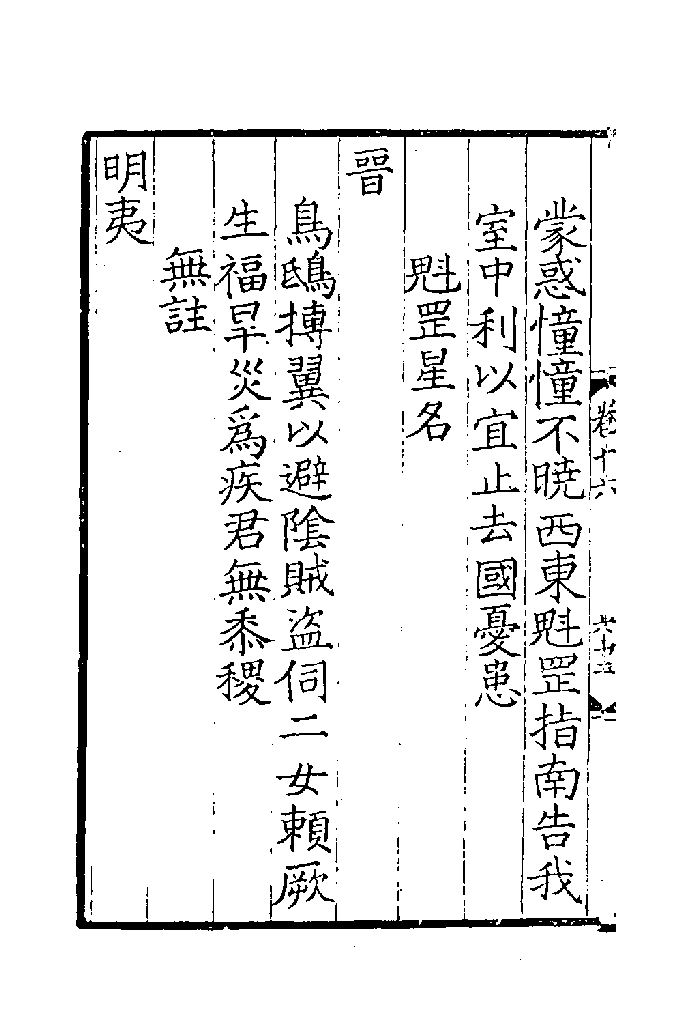 蒙惑憧憧不曉西東魁罡指南告我
室中利以宜止去國憂患
魁罡星名
晉
鳥鴟搏翼以避陰賊盜伺二女賴厥
生福旱災爲疾君無黍稷
無註
明夷
卷十六